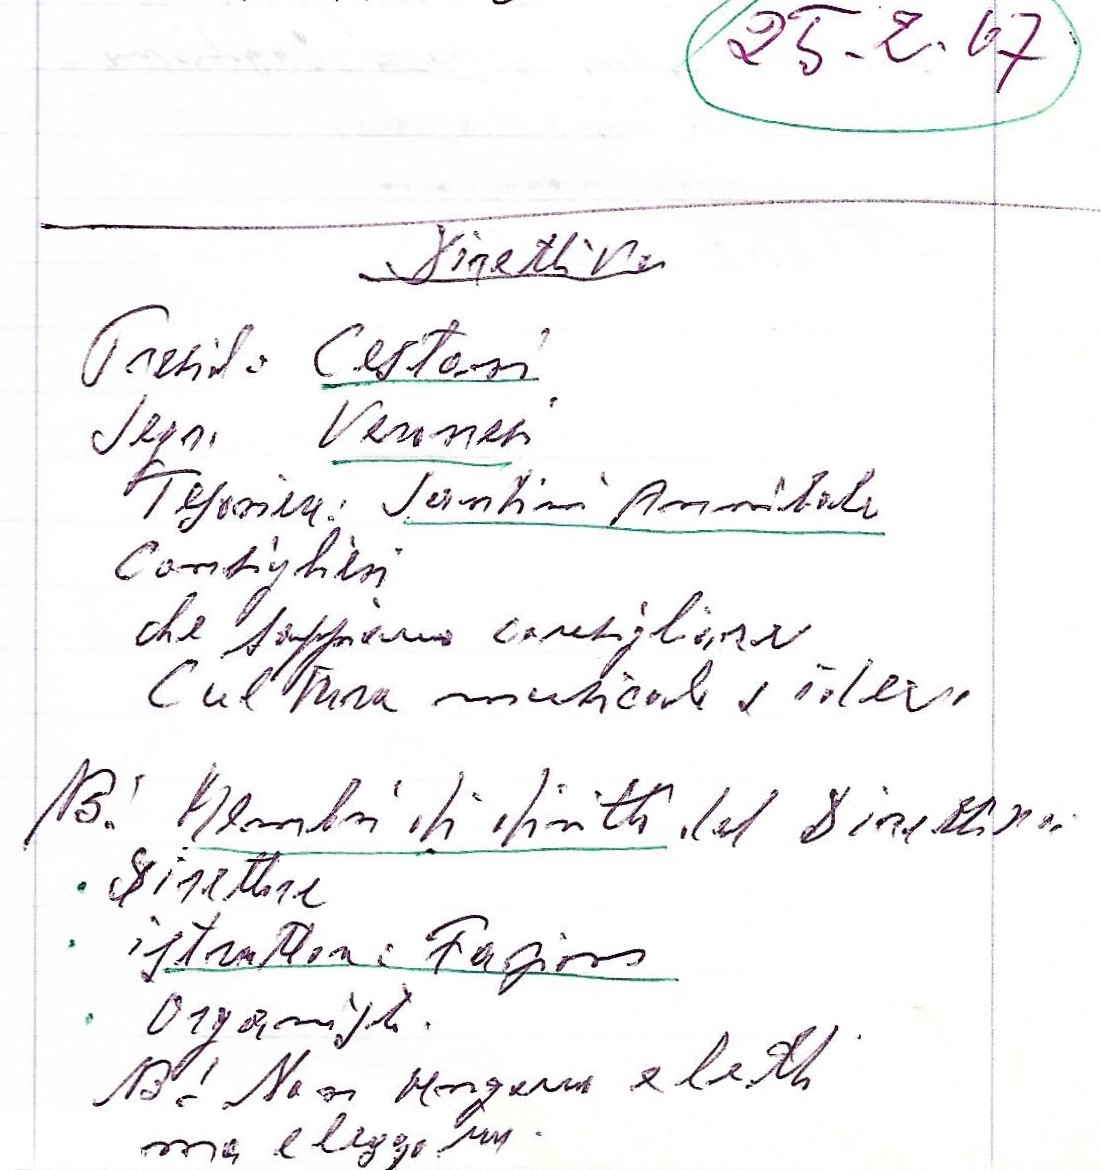 25-2-67
Direttivo
Presid. Cestari
Segr. Veronesi
Tesoriere: Santini Annibale
Consiglieri
che sappiano consigliare
Cultura musicale e idee.
NB! Membri di diritto del Direttivo:
. Direttore
. istruttore: Fagioni
. Organista.
NB! Non vengono eletti
ma eleggono.